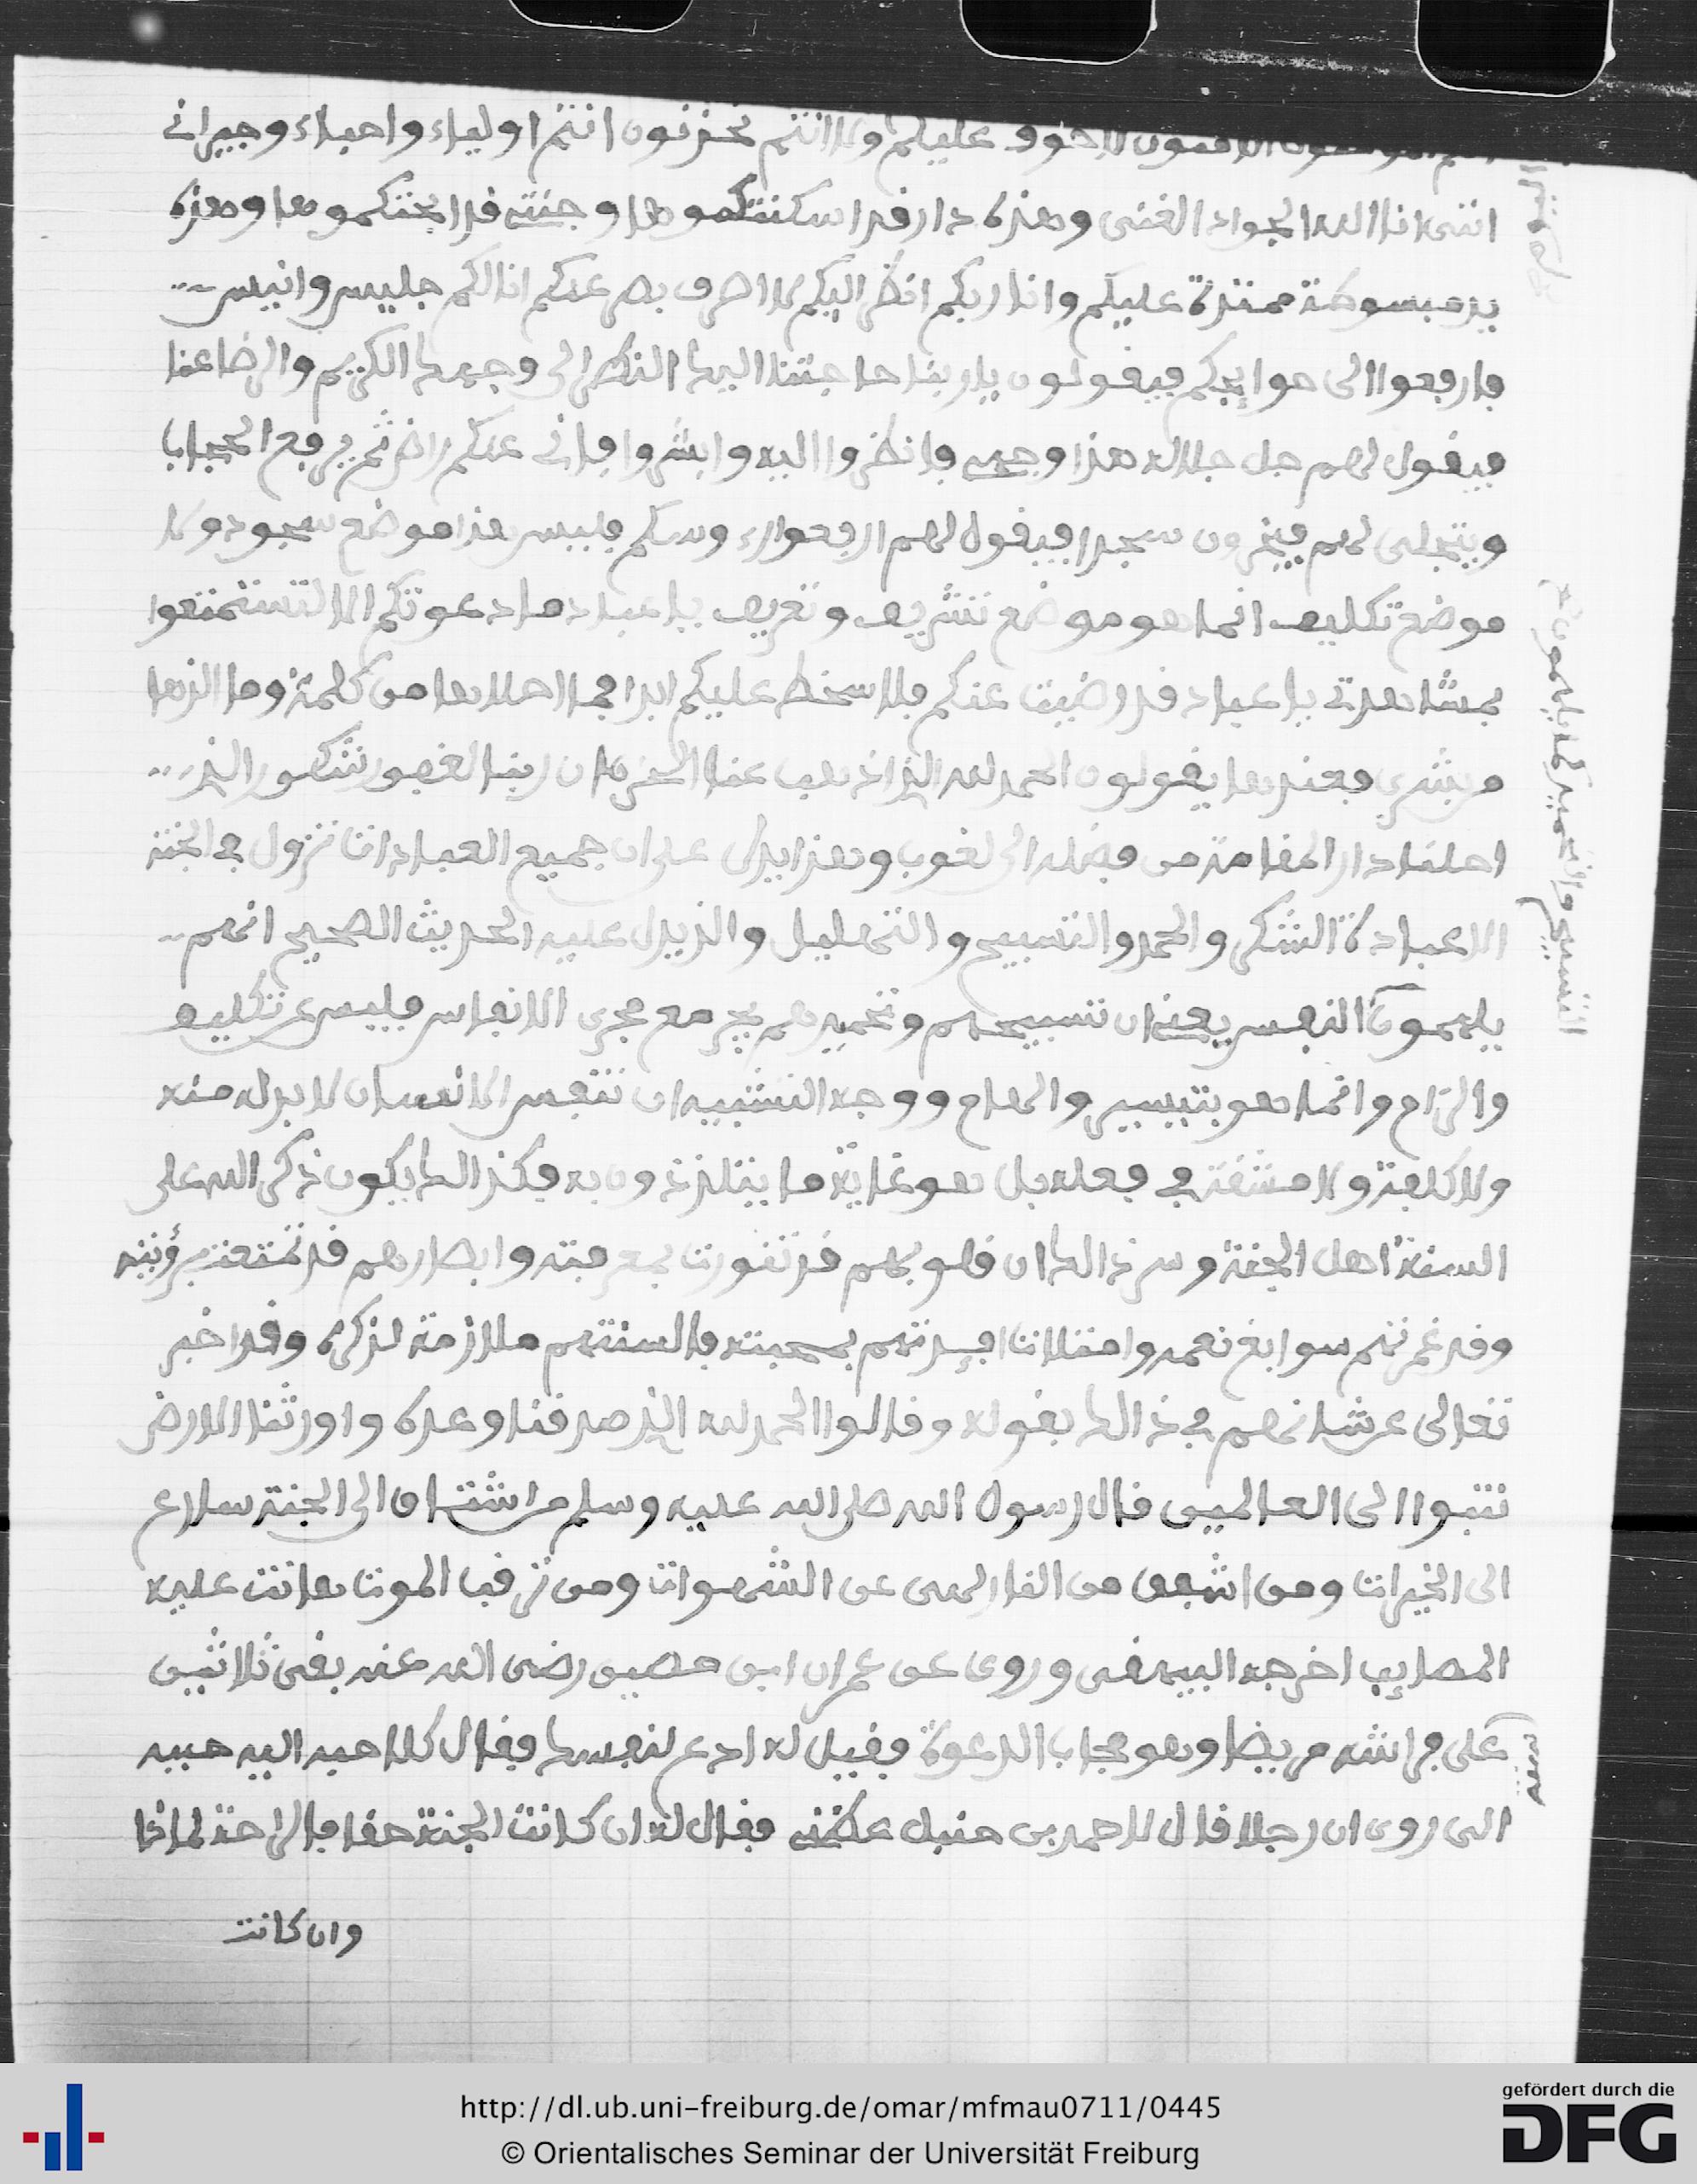 الامنون لا خوف عليكم ولا انتم تحزنون انتم اولياء واحباء وجيراني
انني انا الله الجواد الغني وهذه دار قد اسكنتكموها وجنته قد ابحتكموها وهذه
يد مبسوطة ممتدة عليكم وانا ربكم انظر اليكم لا اصرف بصر عنكم انا لكم جليس وانيس
فارفعوا الى حوايجكم فيقولون يا ربنا حاجتنا اليك النظر الى وجهك الكريم والرضا عنا
فيقول لهم جل جلاله هذا وجهي فانظروا اليه وابشروا فاني عنكم راض ثم يرفع الحجاب
ويتجلى لهم فيخرون سجدا فيقول لهم ارفعوا رءوسكم فليس هذا موضع سجود ولا
موضع تكليف انما هو موضع تشريف وتعريف يا عباد ما دعوتكم الا لتستمتعوا
بمشاهدتي يا عباد قد رضيت عنكم فلا اسخط عليكم ابدا فما احلاها من كلمة وما الذها
من بشرى فعندها يقولون الحمد لله الذي اذهب عنا الحزن ان ربنا لغفور شكور الذي
احلنا دار المقامة من فضله الى لغوب وهذا يدل على ان جميع العبادات تزول في الجنة
الا عبادة الشكر والحمد والتسبيح والتهليل والذي دل عليه الحديث الصحيح انهم
يلهمون النفس يعني ان تسبيحهم وتحميدهم يجر مع مجرى الانفاس فليس عن تكليف
والزام وانما هو بتيسير والهام ووجه التشبيه ان تنفس الانسان لا بد له منه
ولا كلفة ولا مشقة في فعله بل هو غاية ما يتلذذون به فكذلك يكون ذكر الله على
السنة اهل الجنة وسر ذلك ان قلوبهم قد تنورت بمعرفته وابصارهم قد تمتعت برؤيته
وقد غمرتهم سوابغ نعمه وامتلات افئدتهم بمحبته فالسنتهم ملازمة لذكره وقد اخبر
تعالى عن شانهم في ذلك بقوله وقالوا الحمد لله الذي صدقنا وعده واورثنا الارض
نتبوا الى العالمين قال رسول الله صلى الله عليه وسلم من اشتاق الى الجنة سارع
الى الخيرات ومن اشفق من النار لهى عن الشهوات ومن ترقب الموت هانت عليه
المصايب اخرجه البيهقي وروى عن عمران ابن حصين رضي الله عنه بقى ثلاثين
سنة
على فراشه مريضا وهو مجاب الدعوة فقيل له ادع لنفسك فقال كلا احبه اليه حبيبه
الى روى ان رجلا قال لاحمد بن حنبل عظني فقال له ان كانت الجنة حقا فالراحة لماذا
وان كانت
التسبيح والتحميد كما يلهمون
http://dl.ub.uni-freiburg.de/omar/mfmau0711/0445
© Orientalisches Seminar der Universität Freiburg
gefördert durch die
DFG